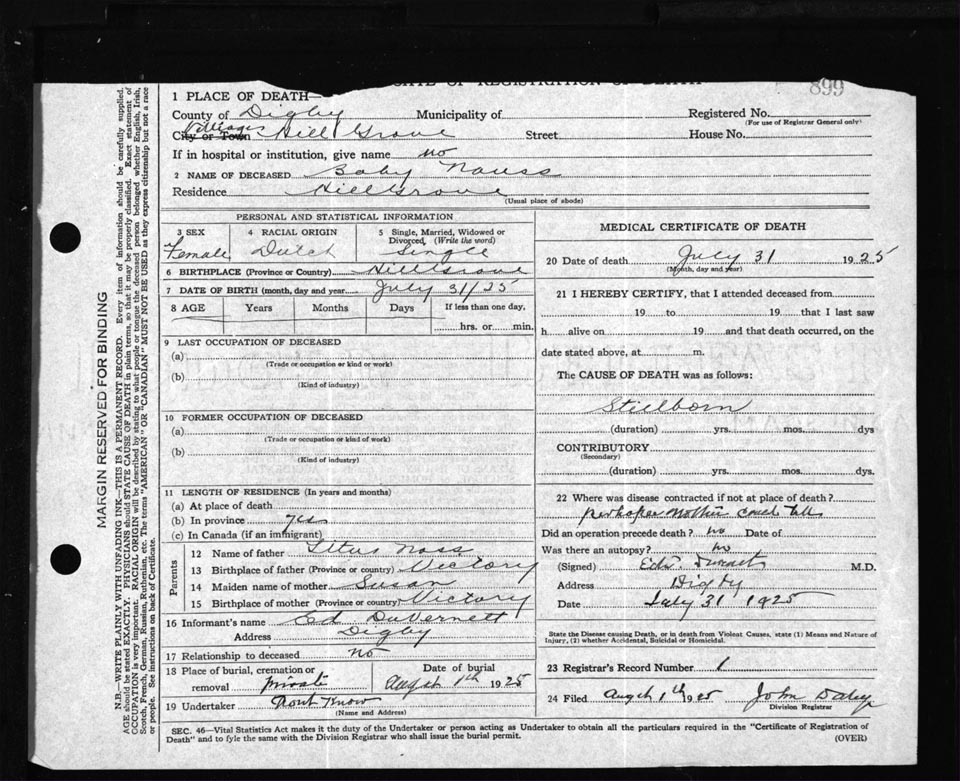 899
OF REGISTRATION OF DEATH
1 PLACE OF DEATH—
County of Digby Municipality of Registered No.
(For use of Registrar General only)
City or Town Village Hill Grove Street House No.
If in hospital or institution, give name no
2 NAME OF DECEASED Baby Nauss
Residence Hillgrove
(Usual place of abode)
PERSONAL AND STATISTICAL INFORMATION
3 SEX 4 RACIAL ORIGIN 5 Single, Married, Widowed or Divorced, (Write the word)
Female Dutch Single
6 BIRTHPLACE (Province or Country) Hillgrove
7 DATE OF BIRTH (month, day and year July 31/25
8 AGE Years Months Days If less than one day,
hrs. or min.
9 LAST OCCUPATION OF DECEASED
(a)
(Trade or occupation or kind or work)
(b)
(Kind of industry)
10 FORMER OCCUPATION OF DECEASED
(a)
(Trade or occupation or kind of work)
(b)
(Kind of industry)
11 LENGTH OF RESIDENCE (In years and months)
(a) At place of death
(b) In province yes
(c) In Canada (if an immigrant)
Parents
12 Name of father Titus Nass
13 Birthplace of father (Province or country) Victory
14 Maiden name of mother Susan
15 Birthplace of mother (Province or country) Victory
16 Informant's name Ed DuVernett
Address Digby
17 Relationship to deceased No
18 Place of burial, cremation or Date of burial
removal private Augst 1th 1925
19 Undertaker Dont Know
(Name and Address)
MEDICAL CERTIFICATE OF DEATH
20 Date of death July 31 1925
(Month, day and year)
21 I HEREBY CERTIFY, that I attended deceased from
19 to 19 that I last saw
h alive on 19 and that death occurred, on the
date stated above, at m.
The CAUSE OF DEATH was as follows:
Stillborn
(duration) yrs. mos. dys
CONTRIBUTORY
(Secondary)
(duration) yrs. mos. dys.
22 Where was disease contracted if not at place of death?
perhaps Mother could tell
Did an operation precede death? no Date of
Was there an autopsy? no
(Signed) Edw M.D.
Address Digby
Date July 31 1925
State the Disease causing Death, or in death from Violent Causes, state (1) Means and Nature of
Injury, (2) whether Accidental, Suicidal or Homicidal.
23 Registrar's Record Number 1
24 Filed Augst 1th 1925 John Daley
Division Registrar
SEC. 46—Vital Statistics Act makes it the duty of the Undertaker or person acting as Undertaker to obtain all the particulars required in the "Certificate of Registration of
Death" and to fyle the same with the Division Registrar who shall issue the burial permit. (OVER)
MARGIN RESERVED FOR BINDING
N.B.—WRITE PLAINLY WITH UNFADING INK—THIS IS A PERMANENT RECORD. Every item of information should be carefully supplied.
AGE should be stated EXACTLY. PHYSICIANS should STATE CAUSE OF DEATH in plain terms, so that it may be properly classified. Exact statement of
OCCUPATION is very important. RACIAL ORIGIN will be described by stating to what people or tongue the deceased person belonged whether English, Irish,
Scotch, French, German, Russian, Ruthenian, etc. The terms "AMERICAN" OR "CANADIAN" MUST NOT BE USED as they express citizenship but not a race
or people. See instructions on back of Certificate.